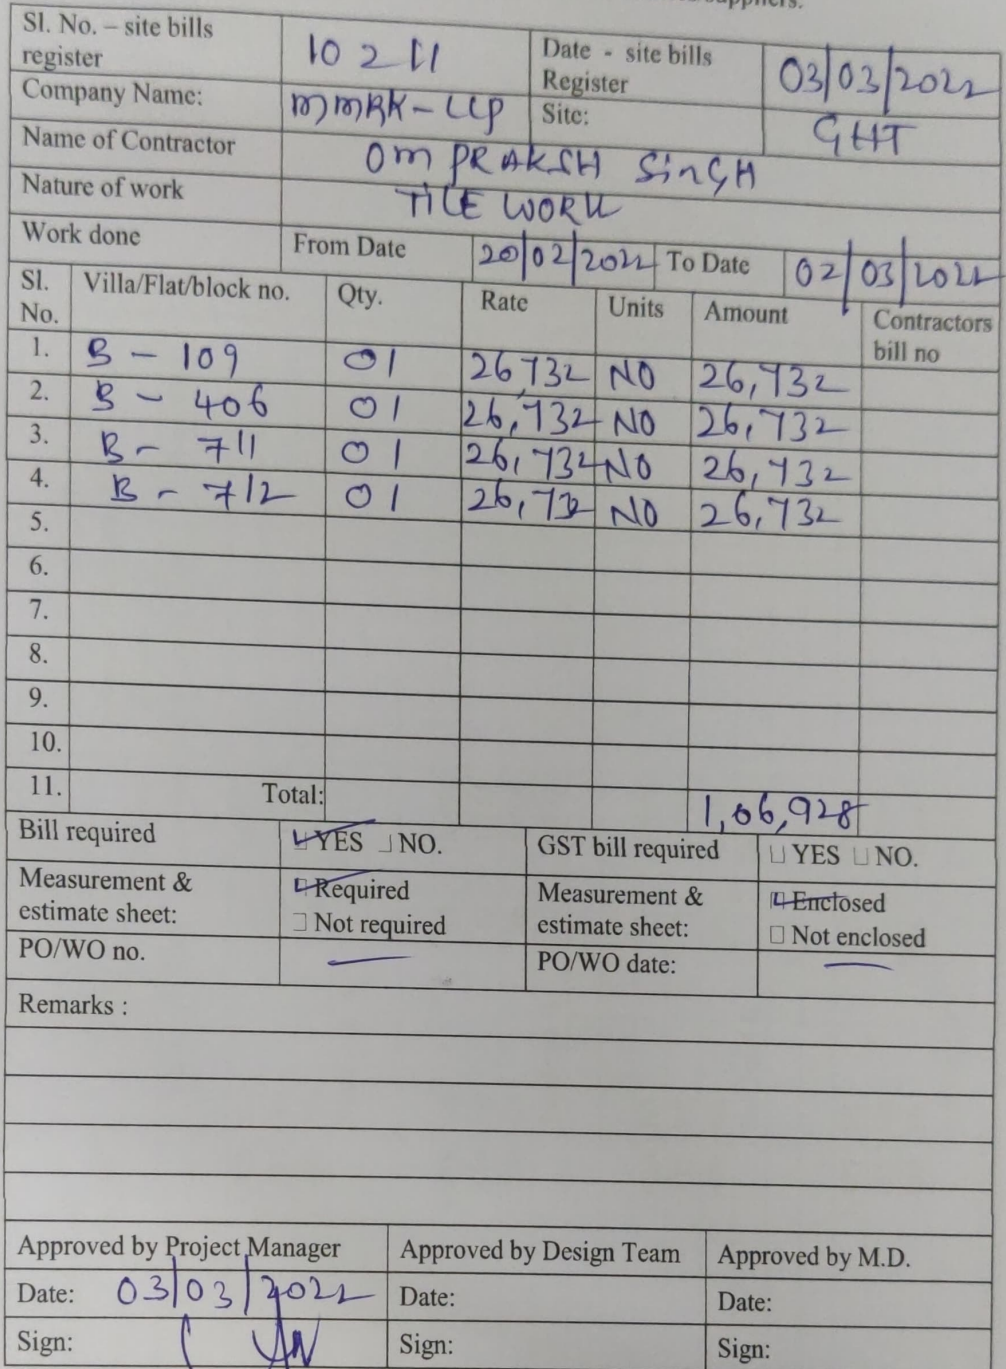 Sl. No. – site bills register 10211 Date - site bills Register 03/03/2022
Company Name: MMRK-LLP Site: GHT
Name of Contractor OM PRAKSH SINGH
Nature of work TILE WORK
Work done From Date 20/02/2022 To Date 02/03/2022
Sl. No. Villa/Flat/block no. Qty. Rate Units Amount Contractors bill no
1. B - 109 01 26,732 NO 26,732
2. B - 406 01 26,732 NO 26,732
3. B - 711 01 26,732 NO 26,732
4. B - 712 01 26,732 NO 26,732
5.
6.
7.
8.
9.
10.
11. Total: 1,06,928
Bill required YES NO. GST bill required YES NO.
Measurement & estimate sheet: Required Not required Measurement & estimate sheet: Enclosed Not enclosed
PO/WO no. — PO/WO date: —
Remarks :
Approved by Project Manager Approved by Design Team Approved by M.D.
Date: 03/03/2022 Date: Date:
Sign: Sign: Sign: